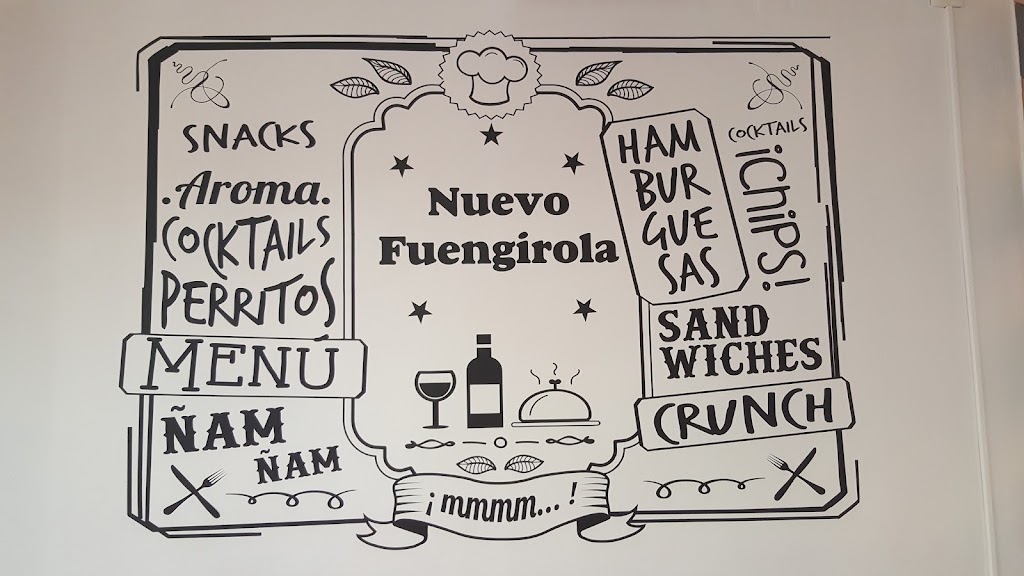 SNACKS
.Aroma.
COCKTAILS
PERRITOS
MENÚ
ÑAM
ÑAM
Nuevo
Fuengirola
¡mmmm...!
HAM
BUR
GUE
SAS
COCKTAILS
¡Chips!
SAND
WICHES
CRUNCH